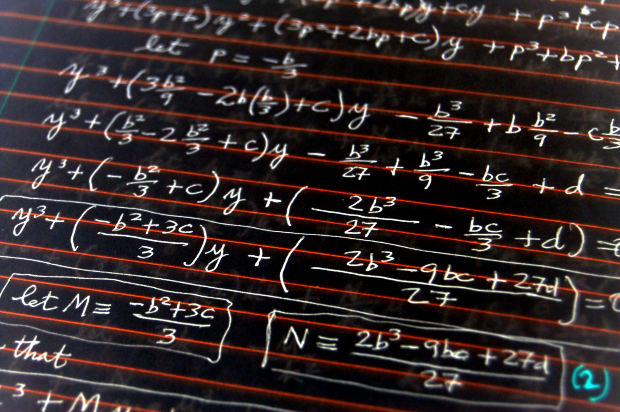 y³+(3p+b)y²+(3p²+2bp+c)y + p³+bp²+
let p = -b/3
y³+(3b²/9 - 2b(b/3)+c)y - b³/27 + b b²/9 - c b/3
y³+(b²/3 - 2b²/3 + c)y - b³/27 + b³/9 - bc/3 + d =
y³+(-b²/3 + c)y + (2b³/27 - bc/3 + d) =
y³+(-b²+3c/3)y + (2b³-9bc+27d/27) =
let M ≡ -b²+3c/3 N ≡ 2b³-9bc+27d/27 (2)
that
³ + M